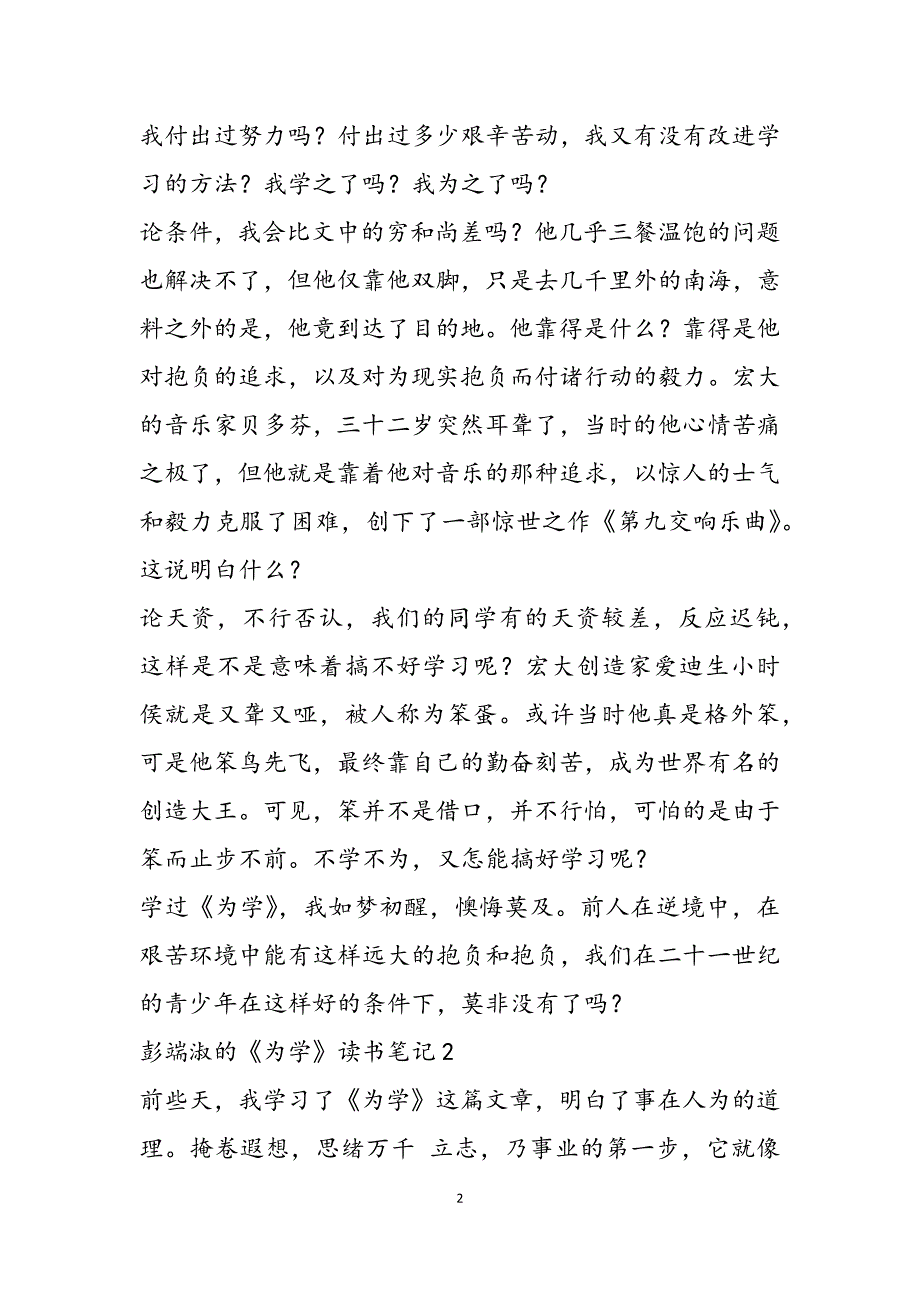 我付出过努力吗？付出过多少艰辛苦动，我又有没有改进学
习的方法？我学之了吗？我为之了吗？
论条件，我会比文中的穷和尚差吗？他几乎三餐温饱的问题
也解决不了，但他仅靠他双脚，只是去几千里外的南海，意
料之外的是，他竟到达了目的地。他靠得是什么？靠得是他
对抱负的追求，以及对为现实抱负而付诸行动的毅力。宏大
的音乐家贝多芬，三十二岁突然耳聋了，当时的他心情苦痛
之极了，但他就是靠着他对音乐的那种追求，以惊人的士气
和毅力克服了困难，创下了一部惊世之作《第九交响乐曲》。
这说明白什么？
论天资，不行否认，我们的同学有的天资较差，反应迟钝，
这样是不是意味着搞不好学习呢？宏大创造家爱迪生小时
侯就是又聋又哑，被人称为笨蛋。或许当时他真是格外笨，
可是他笨鸟先飞，最终靠自己的勤奋刻苦，成为世界有名的
创造大王。可见，笨并不是借口，并不行怕，可怕的是由于
笨而止步不前。不学不为，又怎能搞好学习呢？
学过《为学》，我如梦初醒，懊悔莫及。前人在逆境中，在
艰苦环境中能有这样远大的抱负和抱负，我们在二十一世纪
的青少年在这样好的条件下，莫非没有了吗？
彭端淑的《为学》读书笔记2
前些天，我学习了《为学》这篇文章，明白了事在人为的道
理。掩卷遐想，思绪万千 立志，乃事业的第一步，它就像
2